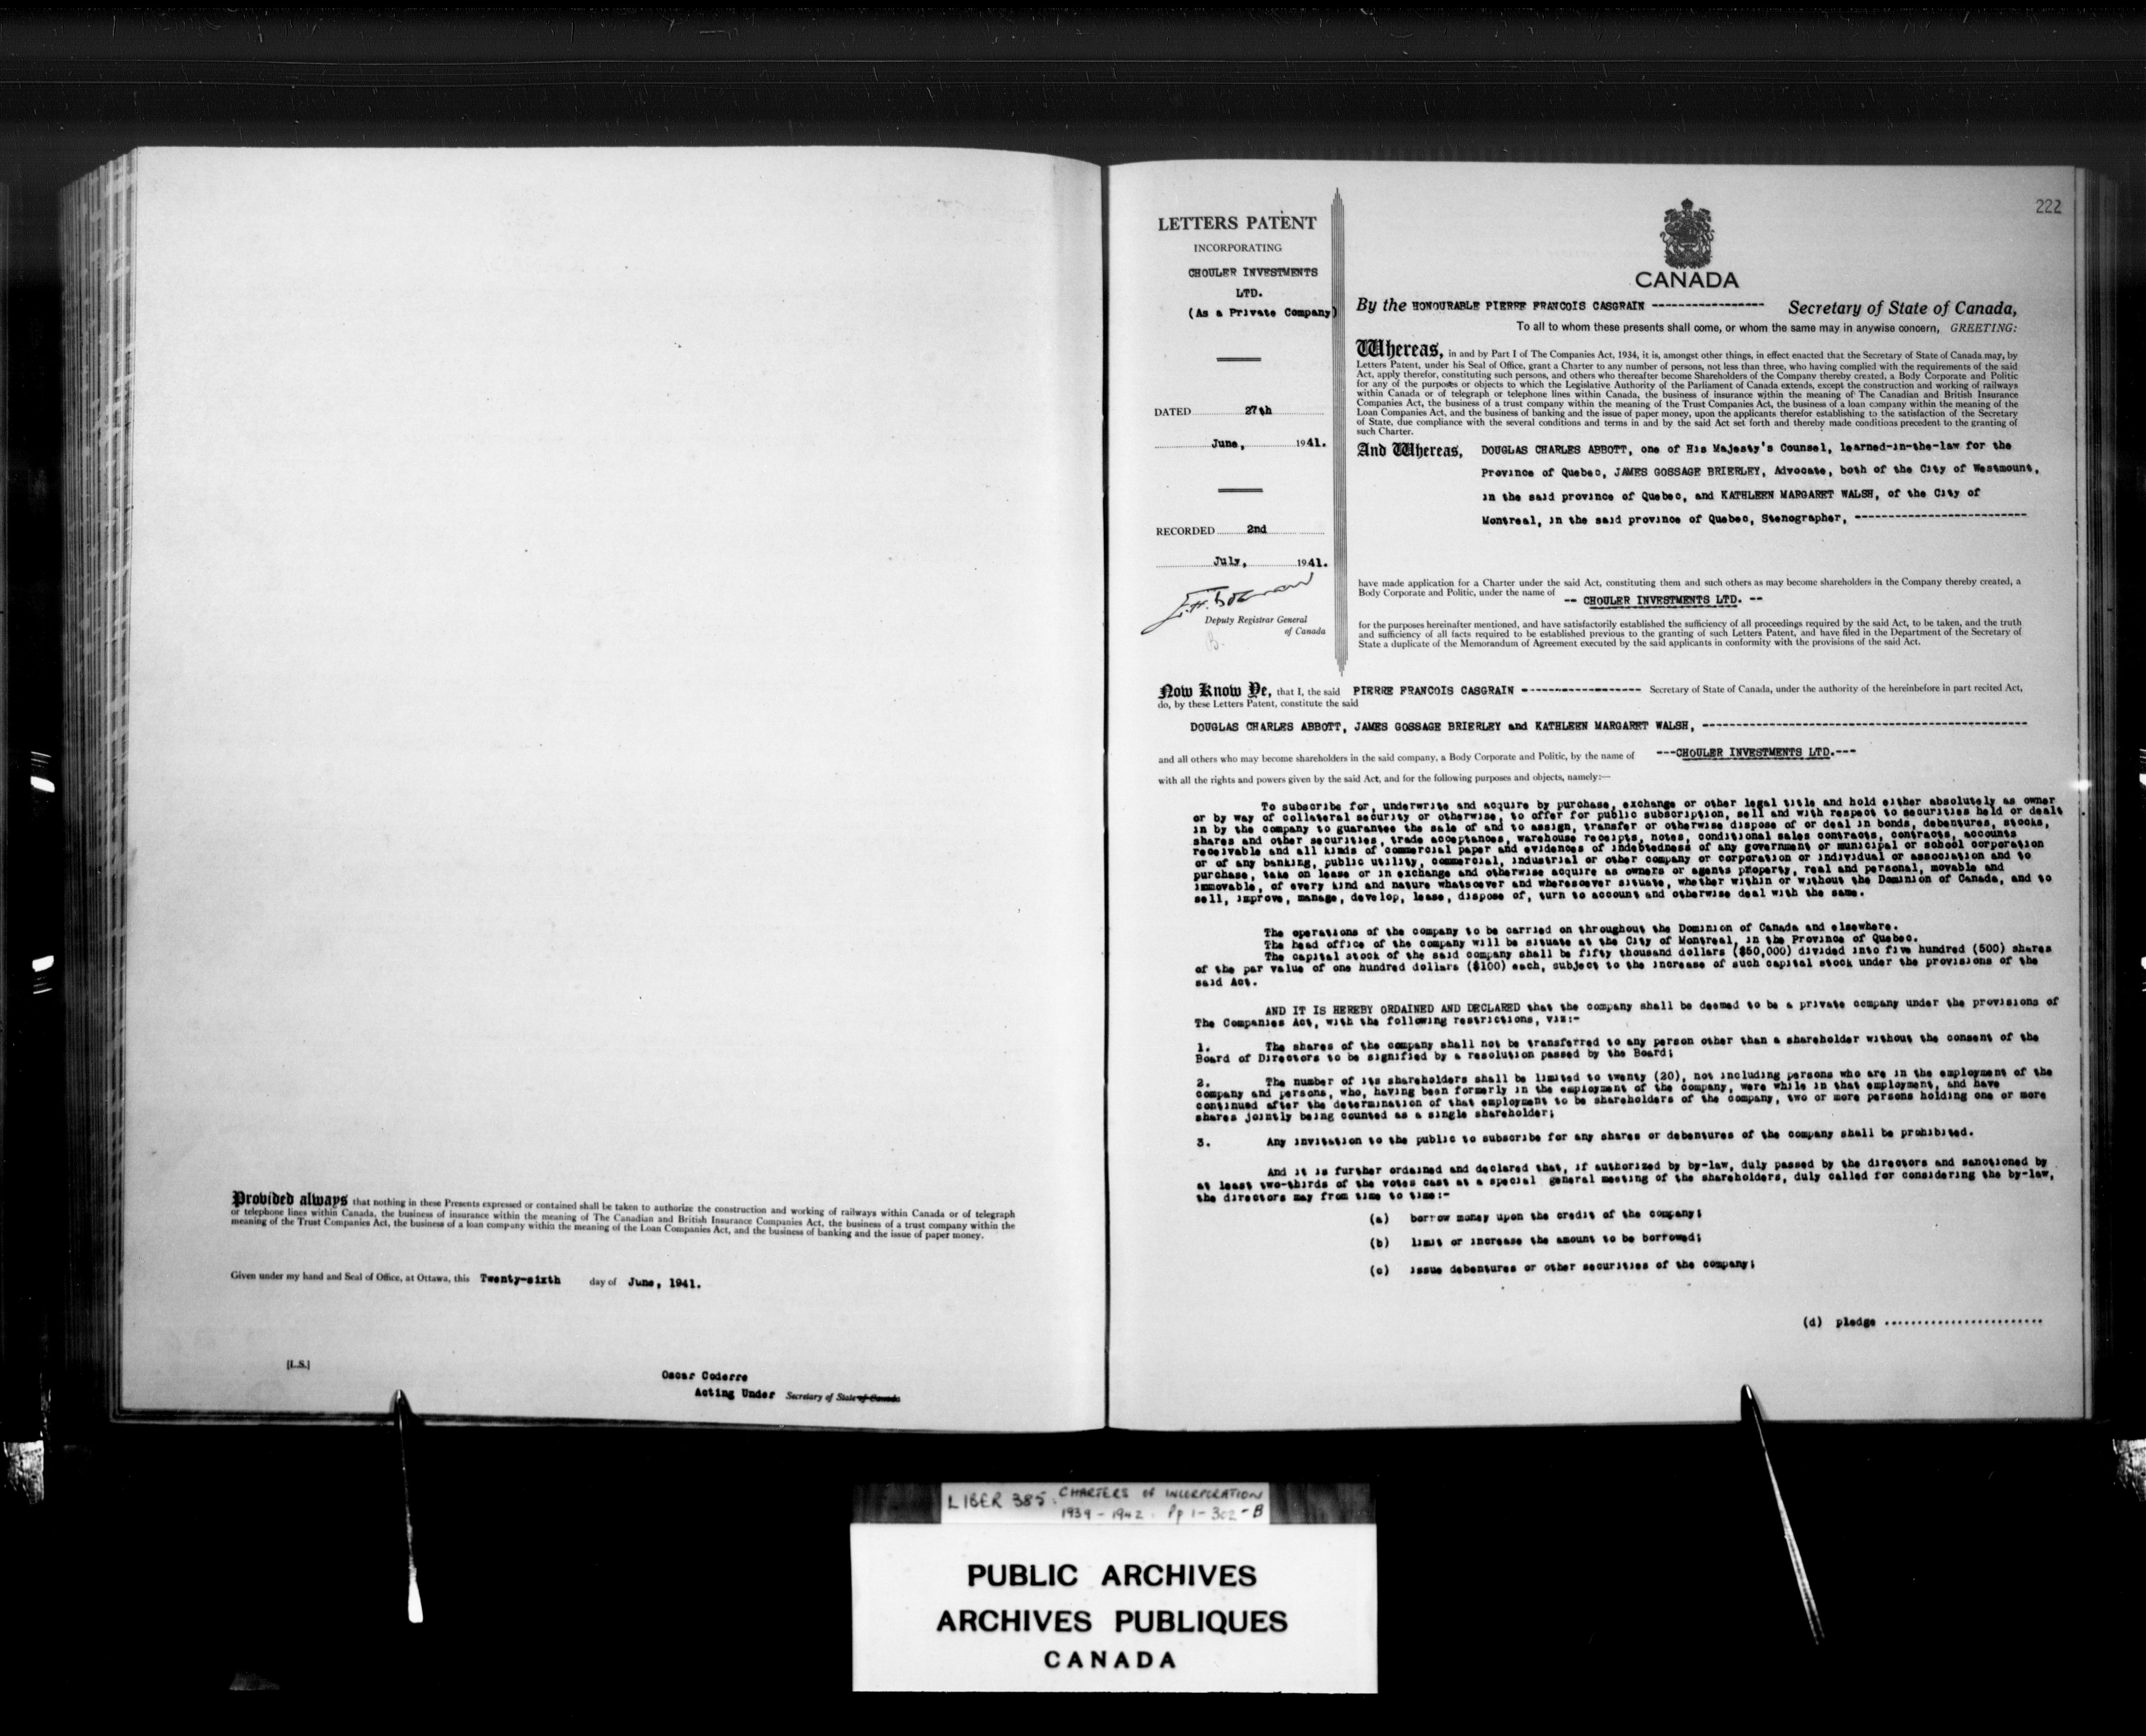 Provided always that nothing in these Presents expressed or contained shall be taken to authorize the construction and working of railways within Canada or of telegraph
or telephone lines within Canada, the business of insurance within the meaning of The Canadian and British Insurance Companies Act, the business of a trust company within the
meaning of the Trust Companies Act, the business of a loan company within the meaning of the Loan Companies Act, and the business of banking and the issue of paper money.
Given under my hand and Seal of Office, at Ottawa, this Twenty-sixth day of June, 1941.
[L.S.]
Oscar Coderre
Acting Under Secretary of State of Canada
222
LETTERS PATENT
INCORPORATING
CHOULER INVESTMENTS
LTD.
(As a Private Company)
DATED 27th
June, 1941.
RECORDED 2nd
July, 1941.
Deputy Registrar General
of Canada
CANADA
By the HONOURABLE PIERRE FRANCOIS CASGRAIN ----------------- Secretary of State of Canada,
To all to whom these presents shall come, or whom the same may in anywise concern, GREETING:
Whereas, in and by Part I of The Companies Act, 1934, it is, amongst other things, in effect enacted that the Secretary of State of Canada may, by
Letters Patent, under his Seal of Office, grant a Charter to any number of persons, not less than three, who having complied with the requirements of the said
Act, apply therefor, constituting such persons, and others who thereafter become Shareholders of the Company thereby created, a Body Corporate and Politic
for any of the purposes or objects to which the Legislative Authority of the Parliament of Canada extends, except the construction and working of railways
within Canada or of telegraph or telephone lines within Canada, the business of insurance within the meaning of The Canadian and British Insurance
Companies Act, the business of a trust company within the meaning of the Trust Companies Act, the business of a loan company within the meaning of the
Loan Companies Act, and the business of banking and the issue of paper money, upon the applicants therefor establishing to the satisfaction of the Secretary
of State, due compliance with the several conditions and terms in and by the said Act set forth and thereby made conditions precedent to the granting of
such Charter.
And Whereas, DOUGLAS CHARLES ABBOTT, one of His Majesty's Counsel, learned-in-the-law for the
Province of Quebec, JAMES GOSSAGE BRIERLEY, Advocate, both of the City of Westmount,
in the said province of Quebec, and KATHLEEN MARGARET WALSH, of the City of
Montreal, in the said province of Quebec, Stenographer, --------------------------
have made application for a Charter under the said Act, constituting them and such others as may become shareholders in the Company thereby created, a
Body Corporate and Politic, under the name of -- CHOULER INVESTMENTS LTD. --
for the purposes hereinafter mentioned, and have satisfactorily established the sufficiency of all proceedings required by the said Act, to be taken, and the truth
and sufficiency of all facts required to be established previous to the granting of such Letters Patent, and have filed in the Department of the Secretary of
State a duplicate of the Memorandum of Agreement executed by the said applicants in conformity with the provisions of the said Act.
Now Know Ye, that I, the said PIERRE FRANCOIS CASGRAIN ------------------ Secretary of State of Canada, under the authority of the hereinbefore in part recited Act,
do, by these Letters Patent, constitute the said
DOUGLAS CHARLES ABBOTT, JAMES GOSSAGE BRIERLEY and KATHLEEN MARGARET WALSH, ------------------------------------------------
and all others who may become shareholders in the said company, a Body Corporate and Politic, by the name of ---CHOULER INVESTMENTS LTD.---
with all the rights and powers given by the said Act, and for the following purposes and objects, namely:—
To subscribe for, underwrite and acquire by purchase, exchange or other legal title and hold either absolutely as owner
or by way of collateral security or otherwise, to offer for public subscription, sell and with respect to securities held or dealt
in by the company to guarantee the sale of and to assign, transfer or otherwise dispose of or deal in bonds, debentures, stocks,
shares and other securities, trade acceptances, warehouse receipts, notes, conditional sales contracts, contracts, accounts
receivable and all kinds of commercial paper and evidences of indebtedness of any government or municipal or school corporation
or of any banking, public utility, commercial, industrial or other company or corporation or individual or association and to
purchase, take on lease or in exchange and otherwise acquire as owners or agents property, real and personal, movable and
immovable, of every kind and nature whatsoever and wheresoever situate, whether within or without the Dominion of Canada, and to
sell, improve, manage, develop, lease, dispose of, turn to account and otherwise deal with the same.
The operations of the company to be carried on throughout the Dominion of Canada and elsewhere.
The head office of the company will be situate at the City of Montreal, in the Province of Quebec.
The capital stock of the said company shall be fifty thousand dollars ($50,000) divided into five hundred (500) shares
of the par value of one hundred dollars ($100) each, subject to the increase of such capital stock under the provisions of the
said Act.
AND IT IS HEREBY ORDAINED AND DECLARED that the company shall be deemed to be a private company under the provisions of
The Companies Act, with the following restrictions, viz:-
1. The shares of the company shall not be transferred to any person other than a shareholder without the consent of the
Board of Directors to be signified by a resolution passed by the Board;
2. The number of its shareholders shall be limited to twenty (20), not including persons who are in the employment of the
company and persons, who, having been formerly in the employment of the company, were while in that employment, and have
continued after the determination of that employment to be shareholders of the company, two or more persons holding one or more
shares jointly being counted as a single shareholder;
3. Any invitation to the public to subscribe for any shares or debentures of the company shall be prohibited.
And it is further ordained and declared that, if authorized by by-law, duly passed by the directors and sanctioned by
at least two-thirds of the votes cast at a special general meeting of the shareholders, duly called for considering the by-law,
the directors may from time to time:-
(a) borrow money upon the credit of the company;
(b) limit or increase the amount to be borrowed;
(c) issue debentures or other securities of the company;
(d) pledge ........................
LIBER 385. CHARTERS OF INCORPORATION
1939 - 1942. Pp 1 - 302 - B
PUBLIC ARCHIVES
ARCHIVES PUBLIQUES
CANADA